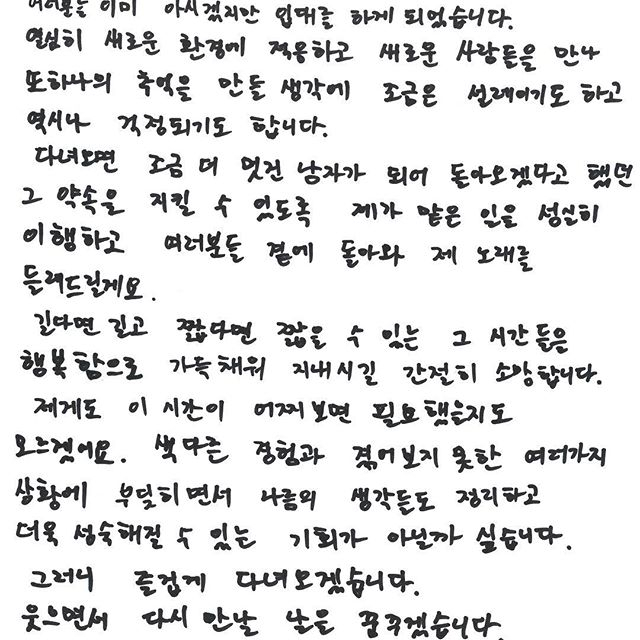 여러분들 이미 아시겠지만 입대를 하게 되었습니다.
열심히 새로운 환경에 적응하고 새로운 사람들을 만나
또하나의 추억을 만들 생각에 조금은 설레이기도 하고
역시나 걱정되기도 합니다.
다녀오면 조금 더 멋진 남자가 되어 돌아오겠다고 했던
그 약속을 지킬 수 있도록 제가 맡은 일을 성실히
이행하고 여러분들 곁에 돌아와 제 노래를
들려드릴게요.
길다면 길고 짧다면 짧을 수 있는 그 시간들은
행복함으로 가득채워 지내시길 간절히 소망합니다.
제게도 이 시간이 어찌보면 필요했을지도
모르겠어요. 색다른 경험과 겪어보지 못한 여러가지
상황에 부딪히면서 나름의 생각들도 정리하고
더욱 성숙해질 수 있는 기회가 아닐까 싶습니다.
그러니 즐겁게 다녀오겠습니다.
웃으면서 다시 만날 날을 꿈꾸겠습니다.